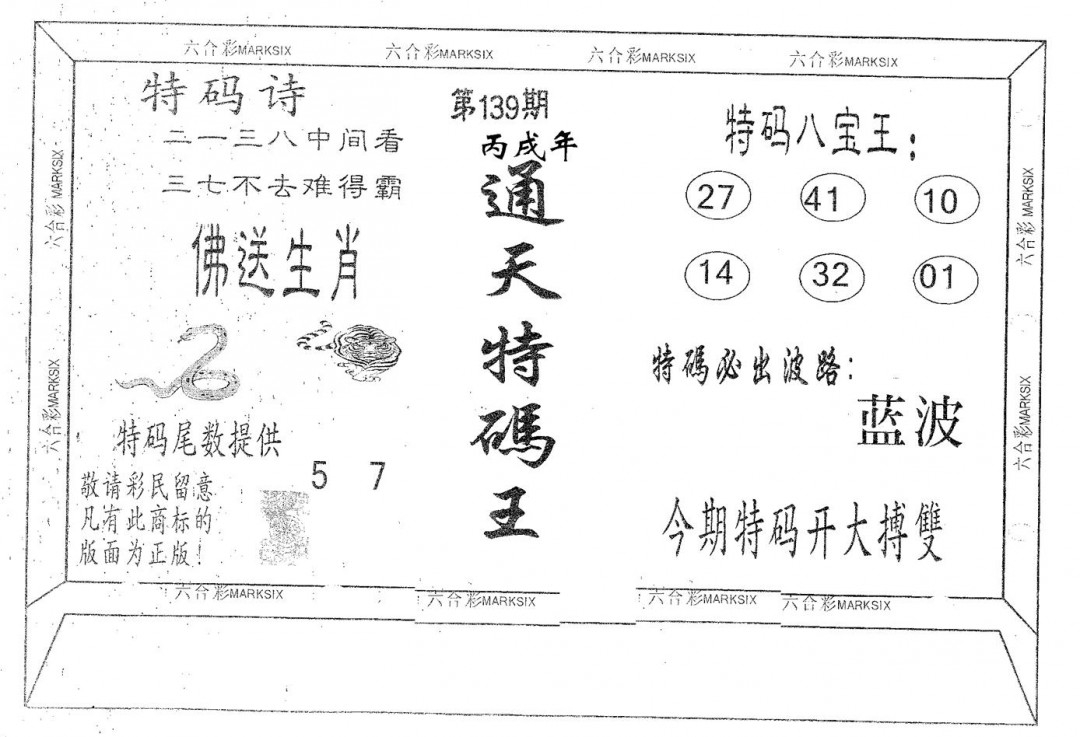 六合彩MARKSIX
六合彩MARKSIX
六合彩MARKSIX
六合彩MARKSIX
特码诗
二一三八中间看
三七不去难得霸
佛送生肖
特码尾数提供
5 7
敬请彩民留意
凡有此商标的
版面为正版！
第139期
丙戌年
通天特碼王
特码八宝王：
27 41 10
14 32 01
特碼必出波路：
蓝波
今期特码开大搏雙
六合彩 MARKSIX
六合彩MARKSIX
六合彩 MARKSIX
六合彩MARKSIX
六合彩MARKSIX
六合彩MARKSIX
六合彩MARKSIX
六合彩MARKSIX